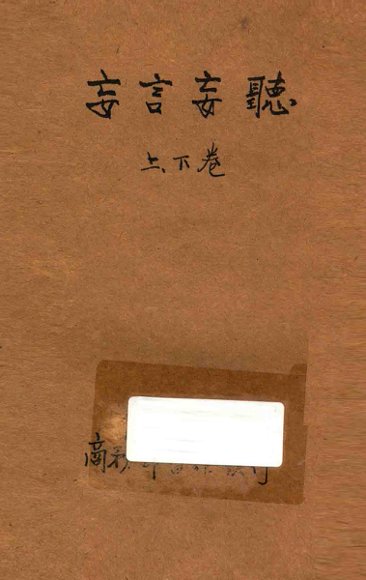 妄言妄聽
上、下卷
商務